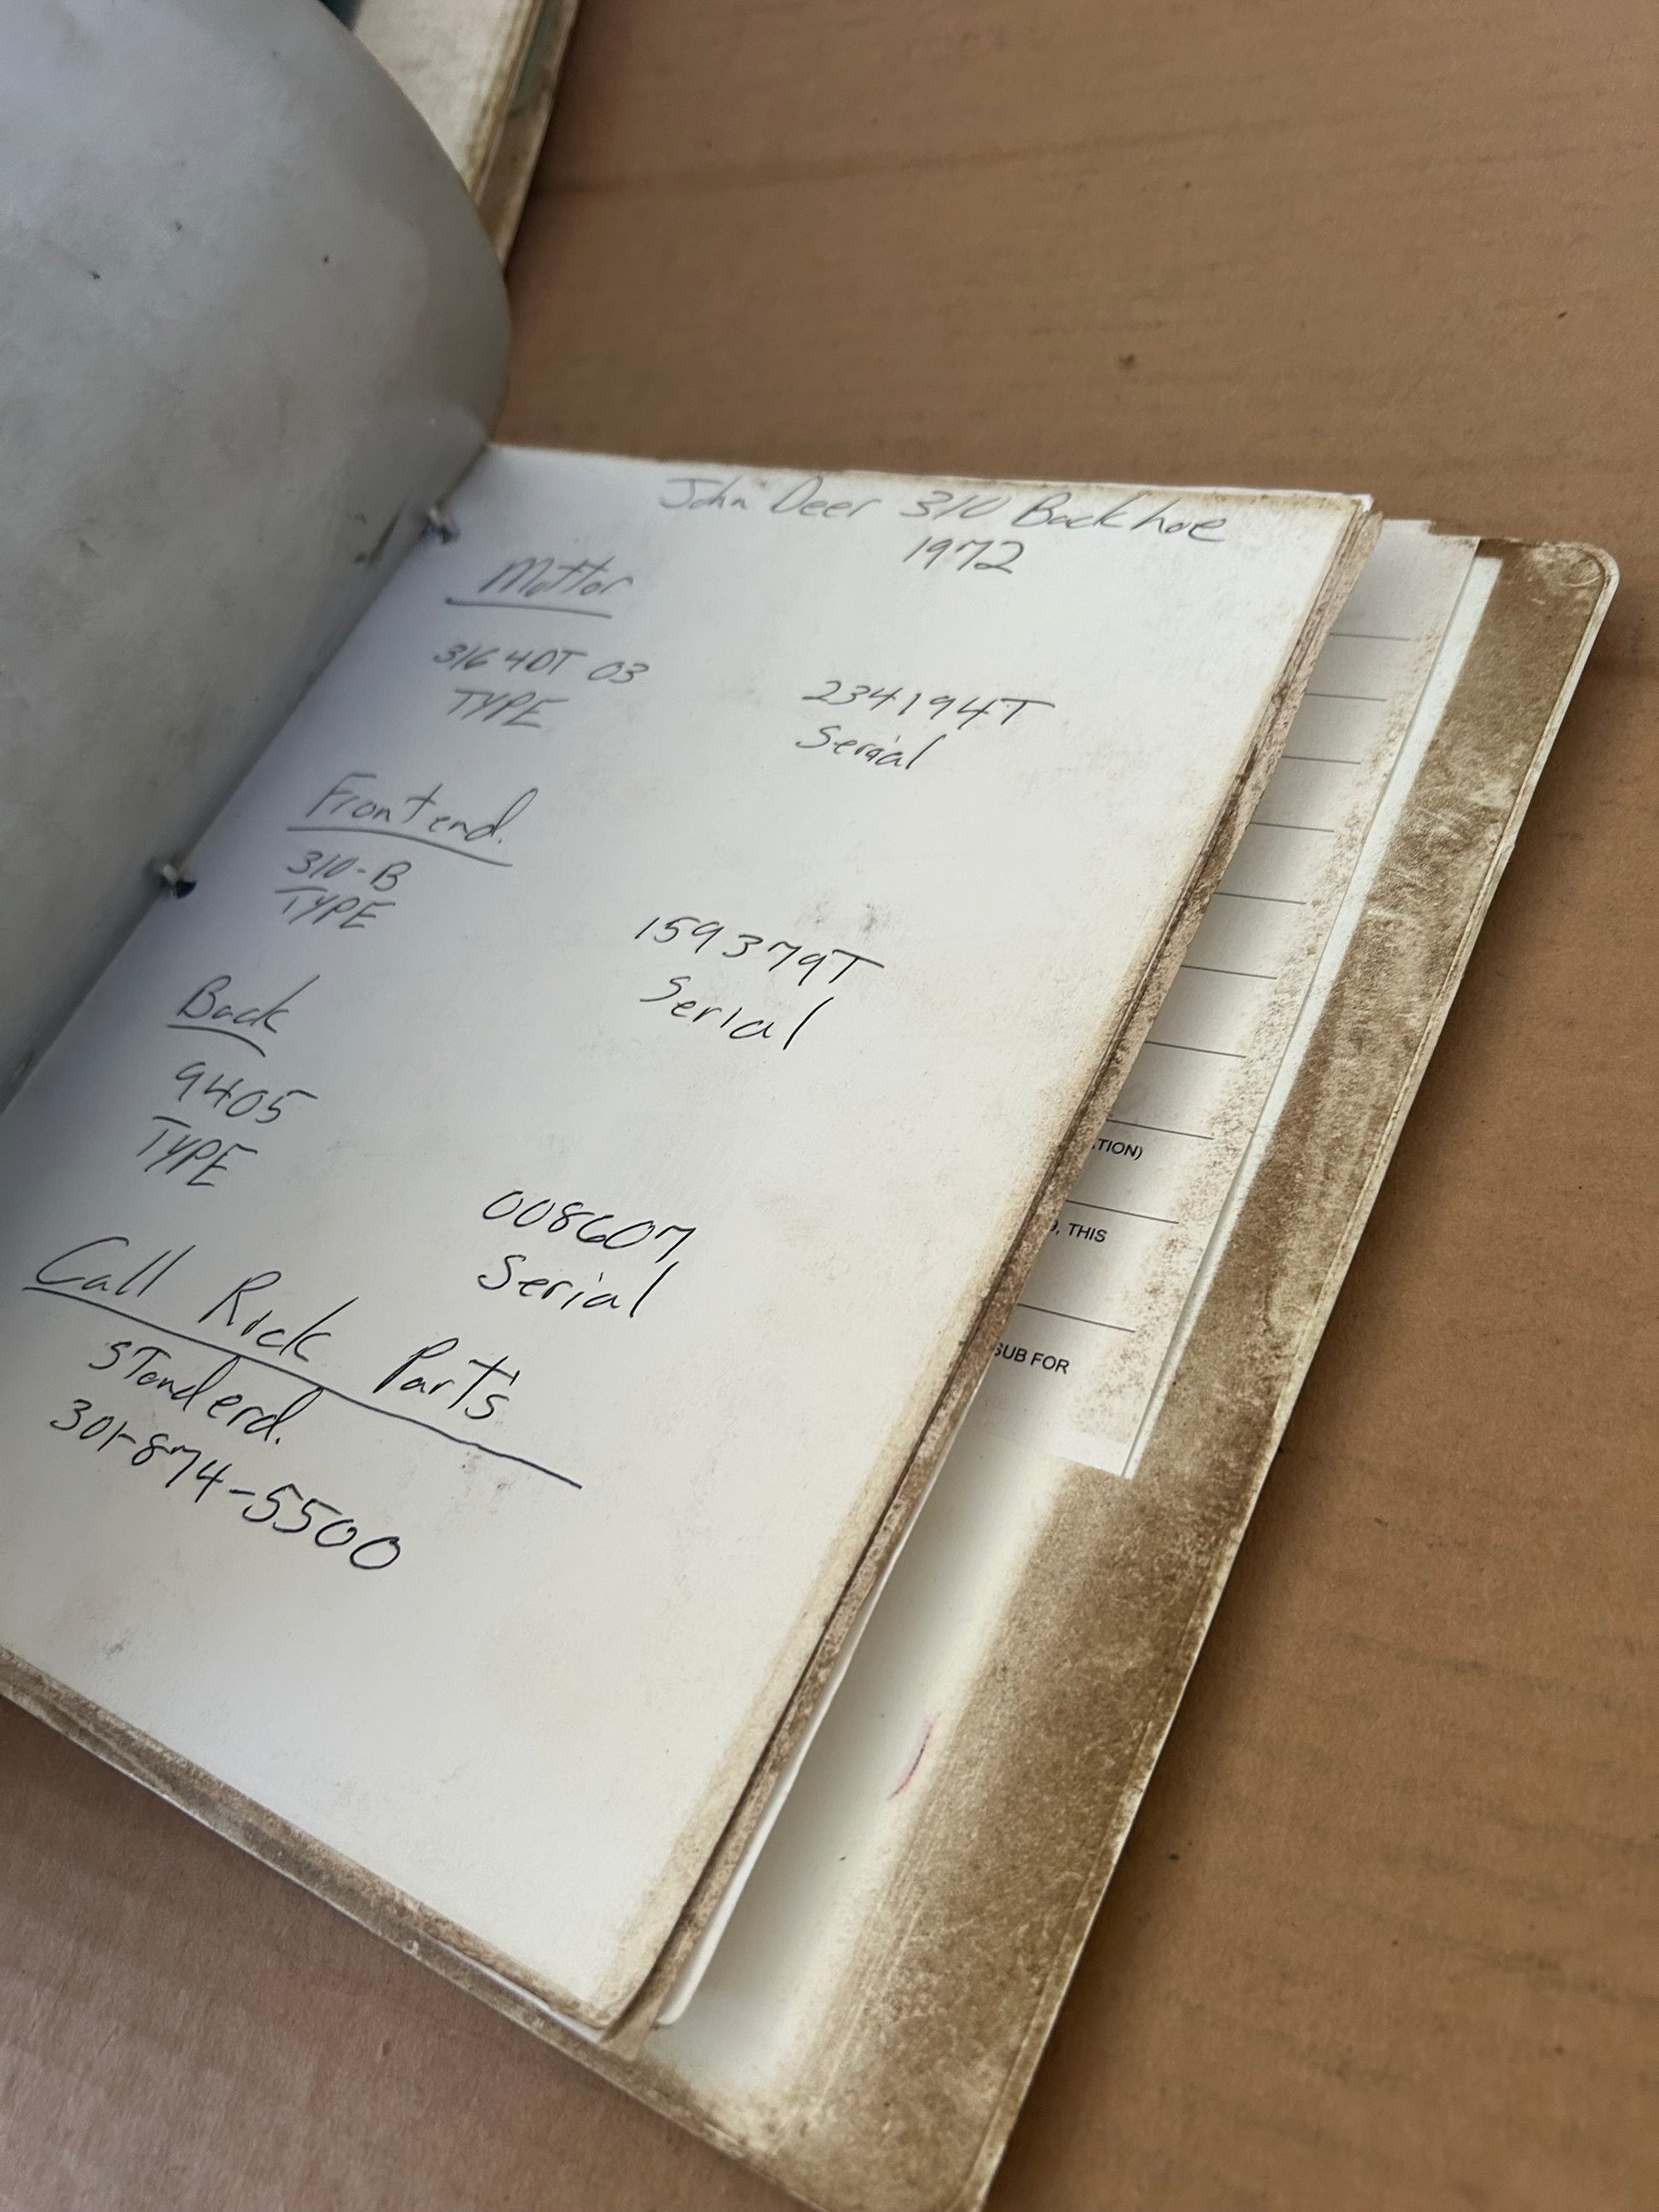 John Deer 310 Backhoe
1972
Mottor
3164DT 03
TYPE
234194T
Serial
Frontend.
310-B
TYPE
159379T
Serial
Back
9405
TYPE
008607
Serial
Call Rick Part's
STanderd.
301-874-5500
TION)
9, THIS
SUB FOR